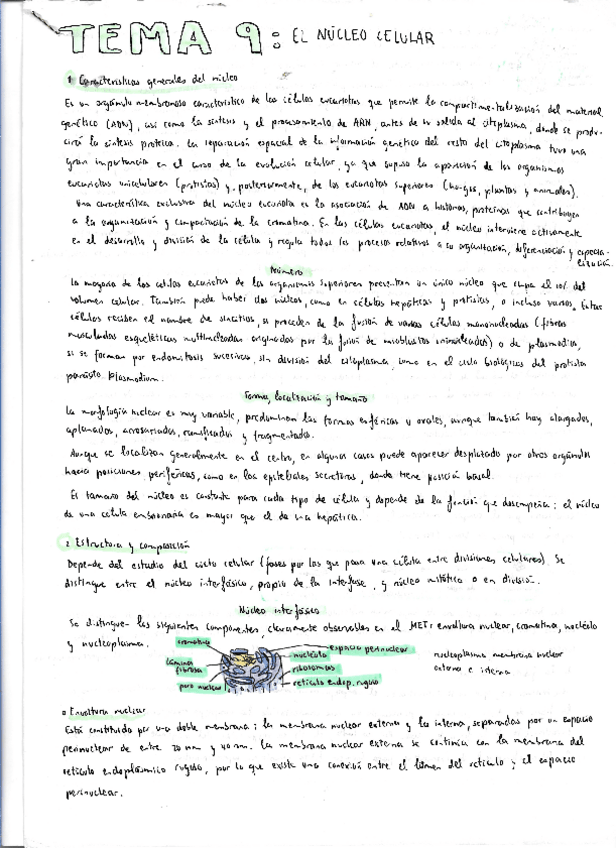 TEMA 9: EL NÚCLEO CELULAR
1 Características generales del núcleo
Es un orgánulo membranoso característico de las células eucariotas que permite la compartimentalización del material
genético (ADN), así como la síntesis y el procesamiento de ARN, antes de su salida al citoplasma, donde se produ-
cirá la síntesis proteica. La separación espacial de la información genética del resto del citoplasma tuvo una
gran importancia en el curso de la evolución celular, ya que supuso la aparición de los organismos
eucariotas unicelulares (protistas) y, posteriormente, de los eucariotas superiores (hongos, plantas y animales).
Una característica exclusiva del núcleo eucariota es la asociación de ADN a histonas, proteínas que contribuyen
a la organización y compactación de la cromatina. En las células eucariotas, el núcleo interviene activamente
en el desarrollo y división de la célula y regula todos los procesos relativos a su organización, diferenciación y especia-
lización.
Número
La mayoría de las células eucariotas de los organismos superiores presentan un único núcleo que ocupa el 10% del
volumen celular. También puede haber dos núcleos, como en células hepáticas y protistas, o incluso varios. Estas
células reciben el nombre de sincitios, si proceden de la fusión de varias células mononucleadas (fibras
musculares esqueléticas multinucleadas originadas por la fusión de mioblastos uninucleados) o de plasmodios,
si se forman por endomitosis sucesivas, sin división del citoplasma, como en el ciclo biológico del protista
parásito Plasmodium.
Forma, localización y tamaño
La morfología nuclear es muy variable, predominan las formas esféricas u ovales, aunque también hay alargados,
aplanados, arrosariados, ramificados y fragmentados.
Aunque se localizan generalmente en el centro, en algunos casos puede aparecer desplazado por otros orgánulos
hacia posiciones periféricas, como en los epitelios secretores, donde tiene posición basal.
El tamaño del núcleo es constante para cada tipo de célula y depende de la función que desempeña: el núcleo
de una célula embrionaria es mayor que el de una hepática.
2 Estructura y composición
Depende del estudio del ciclo celular (fases por las que pasa una célula entre divisiones celulares). Se
distingue entre el núcleo interfásico, propio de la interfase, y núcleo mitótico o en división.
Núcleo interfásico
Se distinguen los siguientes componentes, claramente observables en el MET: envoltura nuclear, cromatina, nucléolo
y nucleoplasma.
cromatina
lámina fibrosa
poro nuclear
espacio perinuclear
nucléolo
ribosomas
retículo endop. rugoso
nucleoplasma membrana nuclear
externa e interna
Envoltura nuclear
Está constituida por una doble membrana: la membrana nuclear externa y la interna, separadas por un espacio
perinuclear de entre 20 nm y 40 nm. La membrana nuclear externa se continúa con la membrana del
retículo endoplásmico rugoso, por lo que existe una conexión entre el lumen del retículo y el espacio
perinuclear.